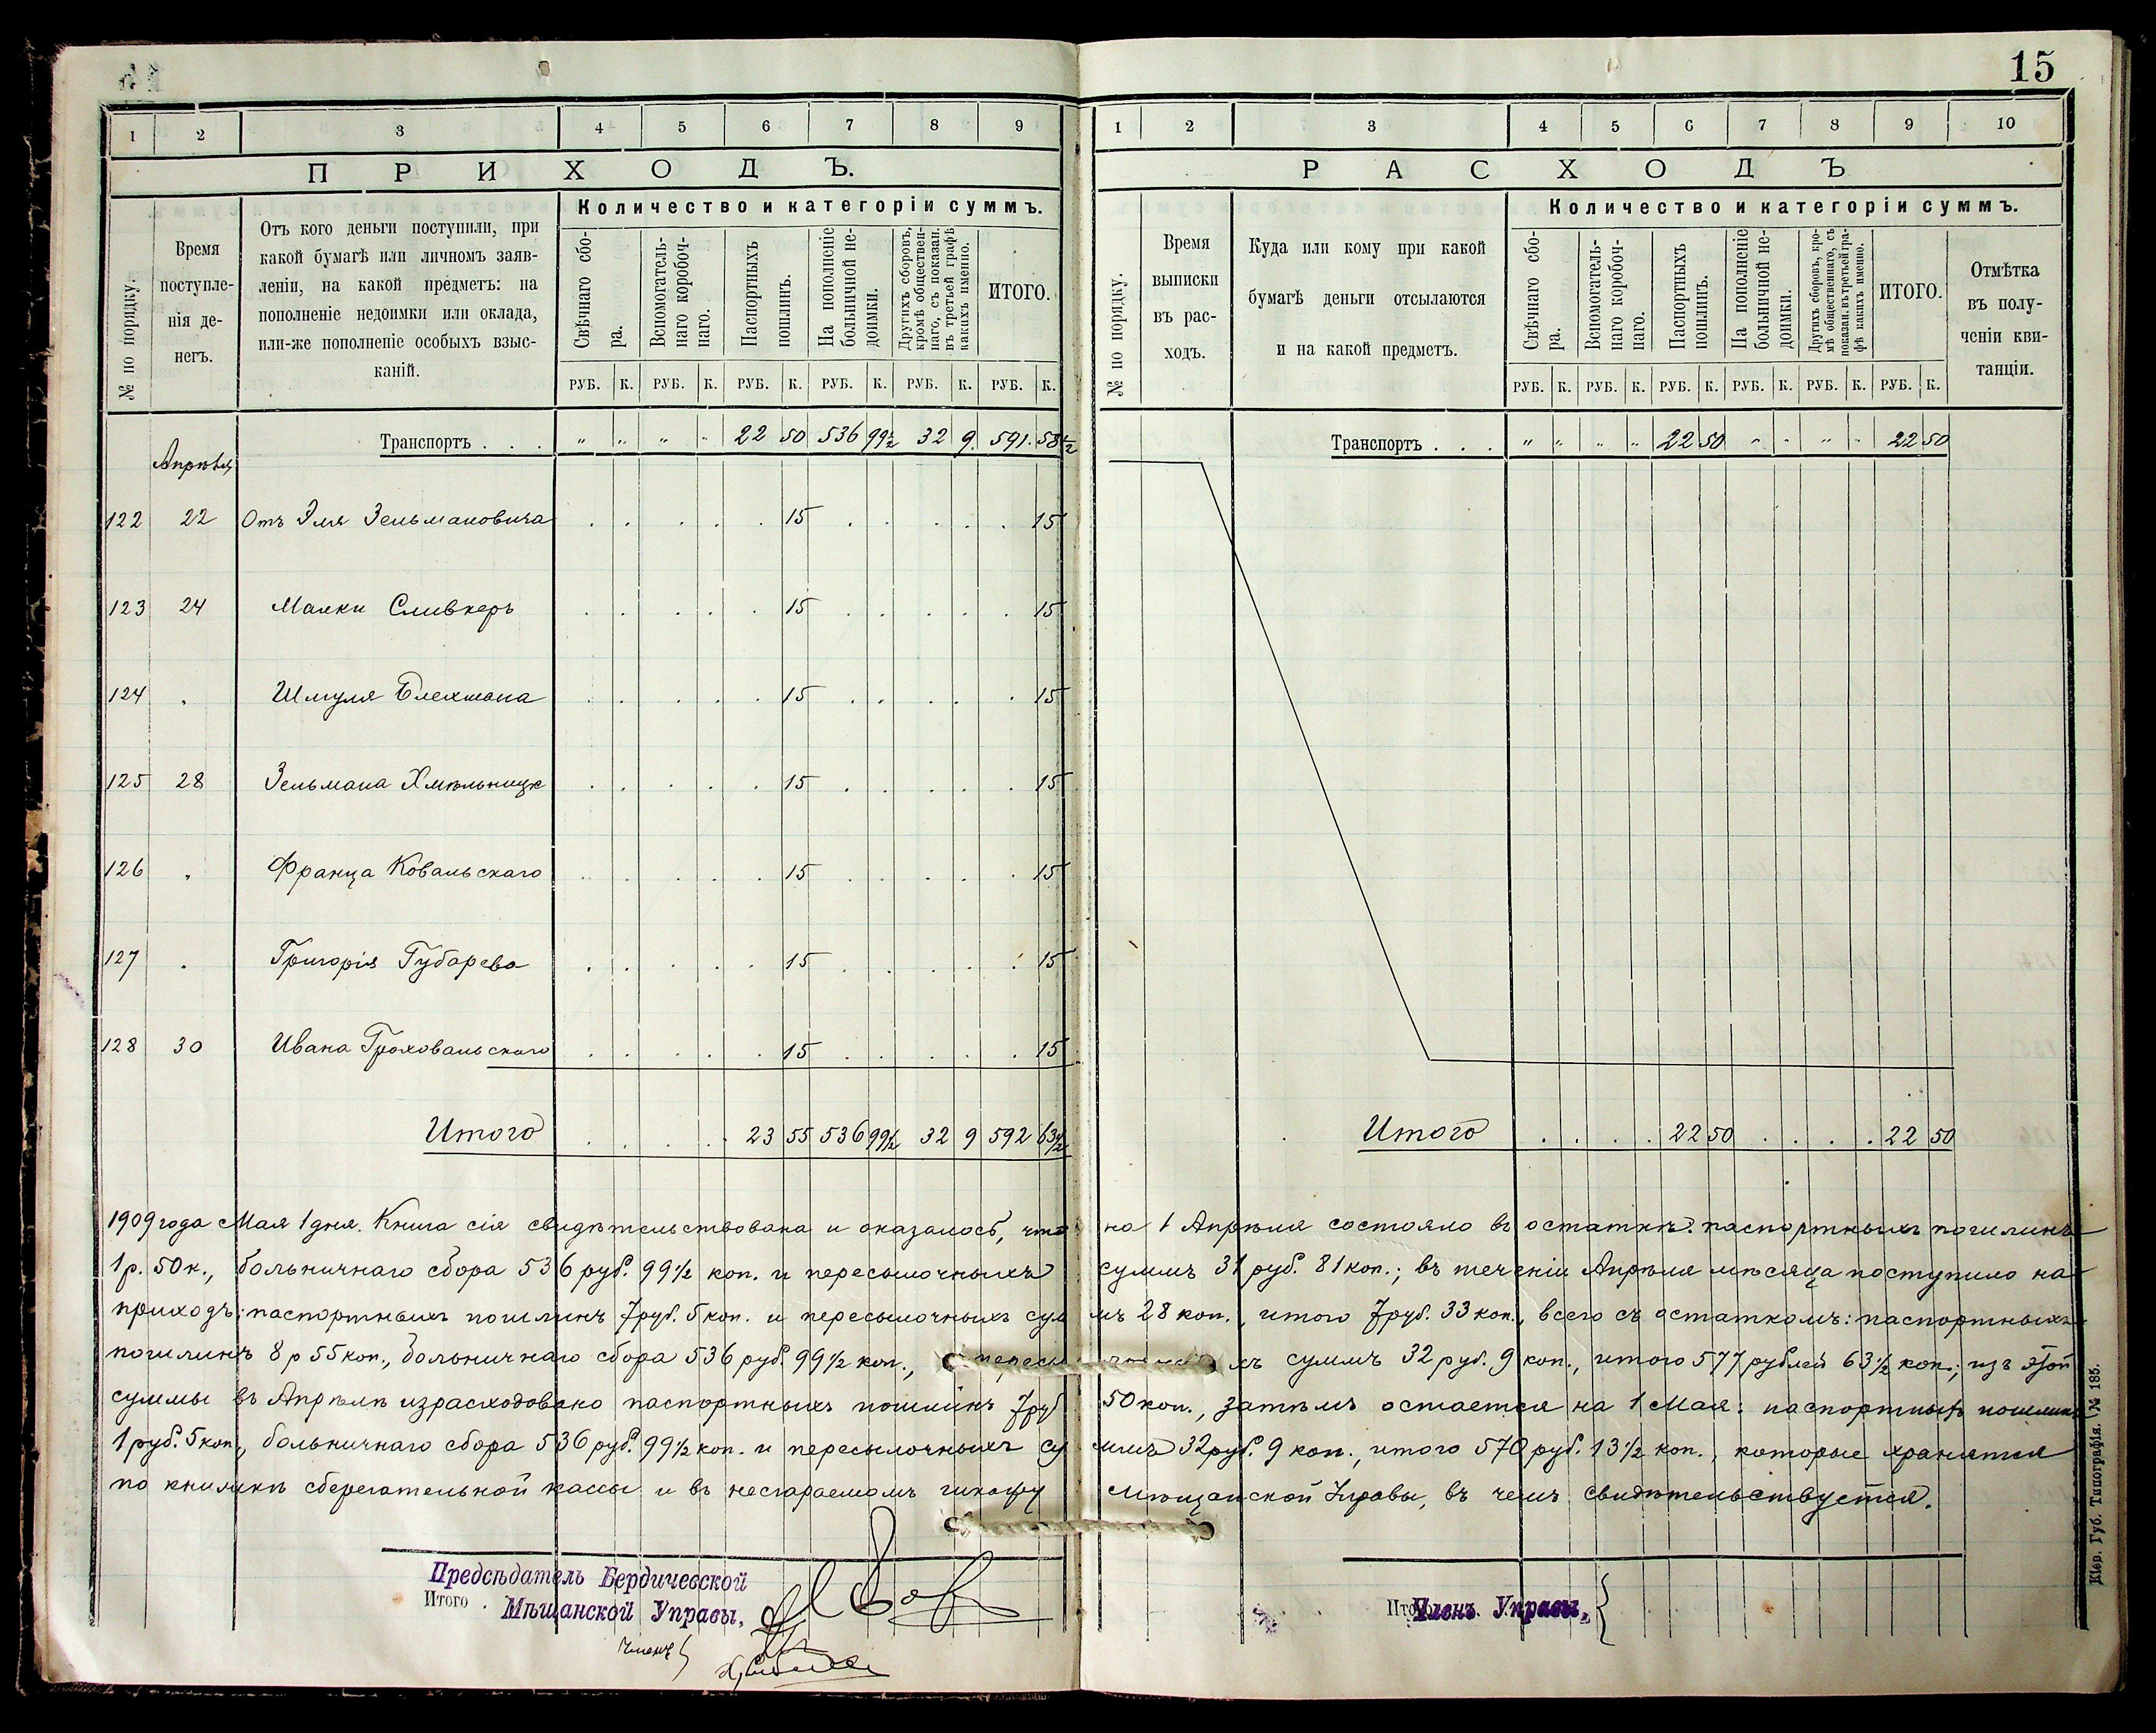 15
1 2 3 4 5 6 7 8 9
ПРИХОДЪ.
№ по порядку.
Время поступле-
нія де-
негъ.
Отъ кого деньги поступили, при
какой бумагѣ или личномъ заяв-
леніи, на какой предметъ: на
пополненіе недоимки или оклада,
или-же пополненіе особыхъ взыс-
каній.
Количество и категоріи суммъ.
Свѣчнаго сбо-
ра.
Вспомогатель-
наго коробоч-
наго.
Паспортныхъ
пошлинъ.
На пополненіе
больничной не-
доимки.
Другихъ сборовъ,
кромѣ обществен-
наго, съ показан.
въ третьей графѣ
какихъ именно.
ИТОГО.
РУБ. К. РУБ. К. РУБ. К. РУБ. К. РУБ. К. РУБ. К.
Транспортъ . . . " " " " 22 50 536 99½ 32 9. 591. 58½
Апрѣля
122 22 Отъ Эля Зельмановича 15 15
123 24 Малки Сливкеръ 15 15
124 " Шмуля Блехмана 15 15
125 28 Зельмана Хмѣльницк 15 15
126 " Франца Ковальскаго 15 15
127 " Григорія Губарева 15 15
128 30 Ивана Гроховальскаго 15 15
Итого 23 55 536 99½ 32 9 592 63½
1 2 3 4 5 6 7 8 9 10
РАСХОДЪ
№ по порядку.
Время
выписки
въ рас-
ходъ.
Куда или кому при какой
бумагѣ деньги отсылаются
и на какой предметъ.
Количество и категоріи суммъ.
Свѣчнаго сбо-
ра.
Вспомогатель-
наго коробоч-
наго.
Паспортныхъ
пошлинъ.
На пополненіе
больничной не-
доимки.
Другихъ сборовъ, кро-
мѣ общественнаго, съ
показан. въ третьей гра-
фѣ какихъ именно.
ИТОГО.
Отмѣтка
въ полу-
ченіи кви-
танціи.
РУБ. К. РУБ. К. РУБ. К. РУБ. К. РУБ. К. РУБ. К.
Транспортъ . . . " " " " 22 50 " " " " 22 50
Итого 22 50 22 50
1909 года Мая 1 дня. Книга сія свидѣтельствована и оказалось, что на 1 Апрѣля состояло въ остаткѣ: паспортныхъ пошлинъ
1 р. 50 к., больничнаго сбора 536 руб. 99½ коп. и пересылочныхъ суммъ 31 руб. 81 коп.; въ теченіи Апрѣля мѣсяца поступило на
приходъ: паспортныхъ пошлинъ 7 руб. 5 коп. и пересылочныхъ суммъ 28 коп., итого 7 руб. 33 коп., всего съ остаткомъ: паспортныхъ
пошлинъ 8 р 55 коп., больничнаго сбора 536 руб. 99½ коп., пересылочныхъ суммъ 32 руб. 9 коп., итого 577 рублей 63½ коп.; изъ этой
суммы въ Апрѣлѣ израсходовано паспортныхъ пошлинъ 7 руб 50 коп., затѣмъ остается на 1 Мая: паспортныхъ пошлинъ
1 руб. 5 коп., больничнаго сбора 536 руб. 99½ коп. и пересылочныхъ суммъ 32 руб. 9 коп., итого 570 руб. 13½ коп., которые хранятся
по книжкѣ сберегательной кассы и въ несгараемомъ шкафу Мѣщанской Управы, въ чемъ свидѣтельствуется.
Предсѣдатель Бердичевской
Итого .
Мѣщанской Управы,
Членъ
Итого
Членъ Управы,
Кіевр. Губ. Типографія. № 185.